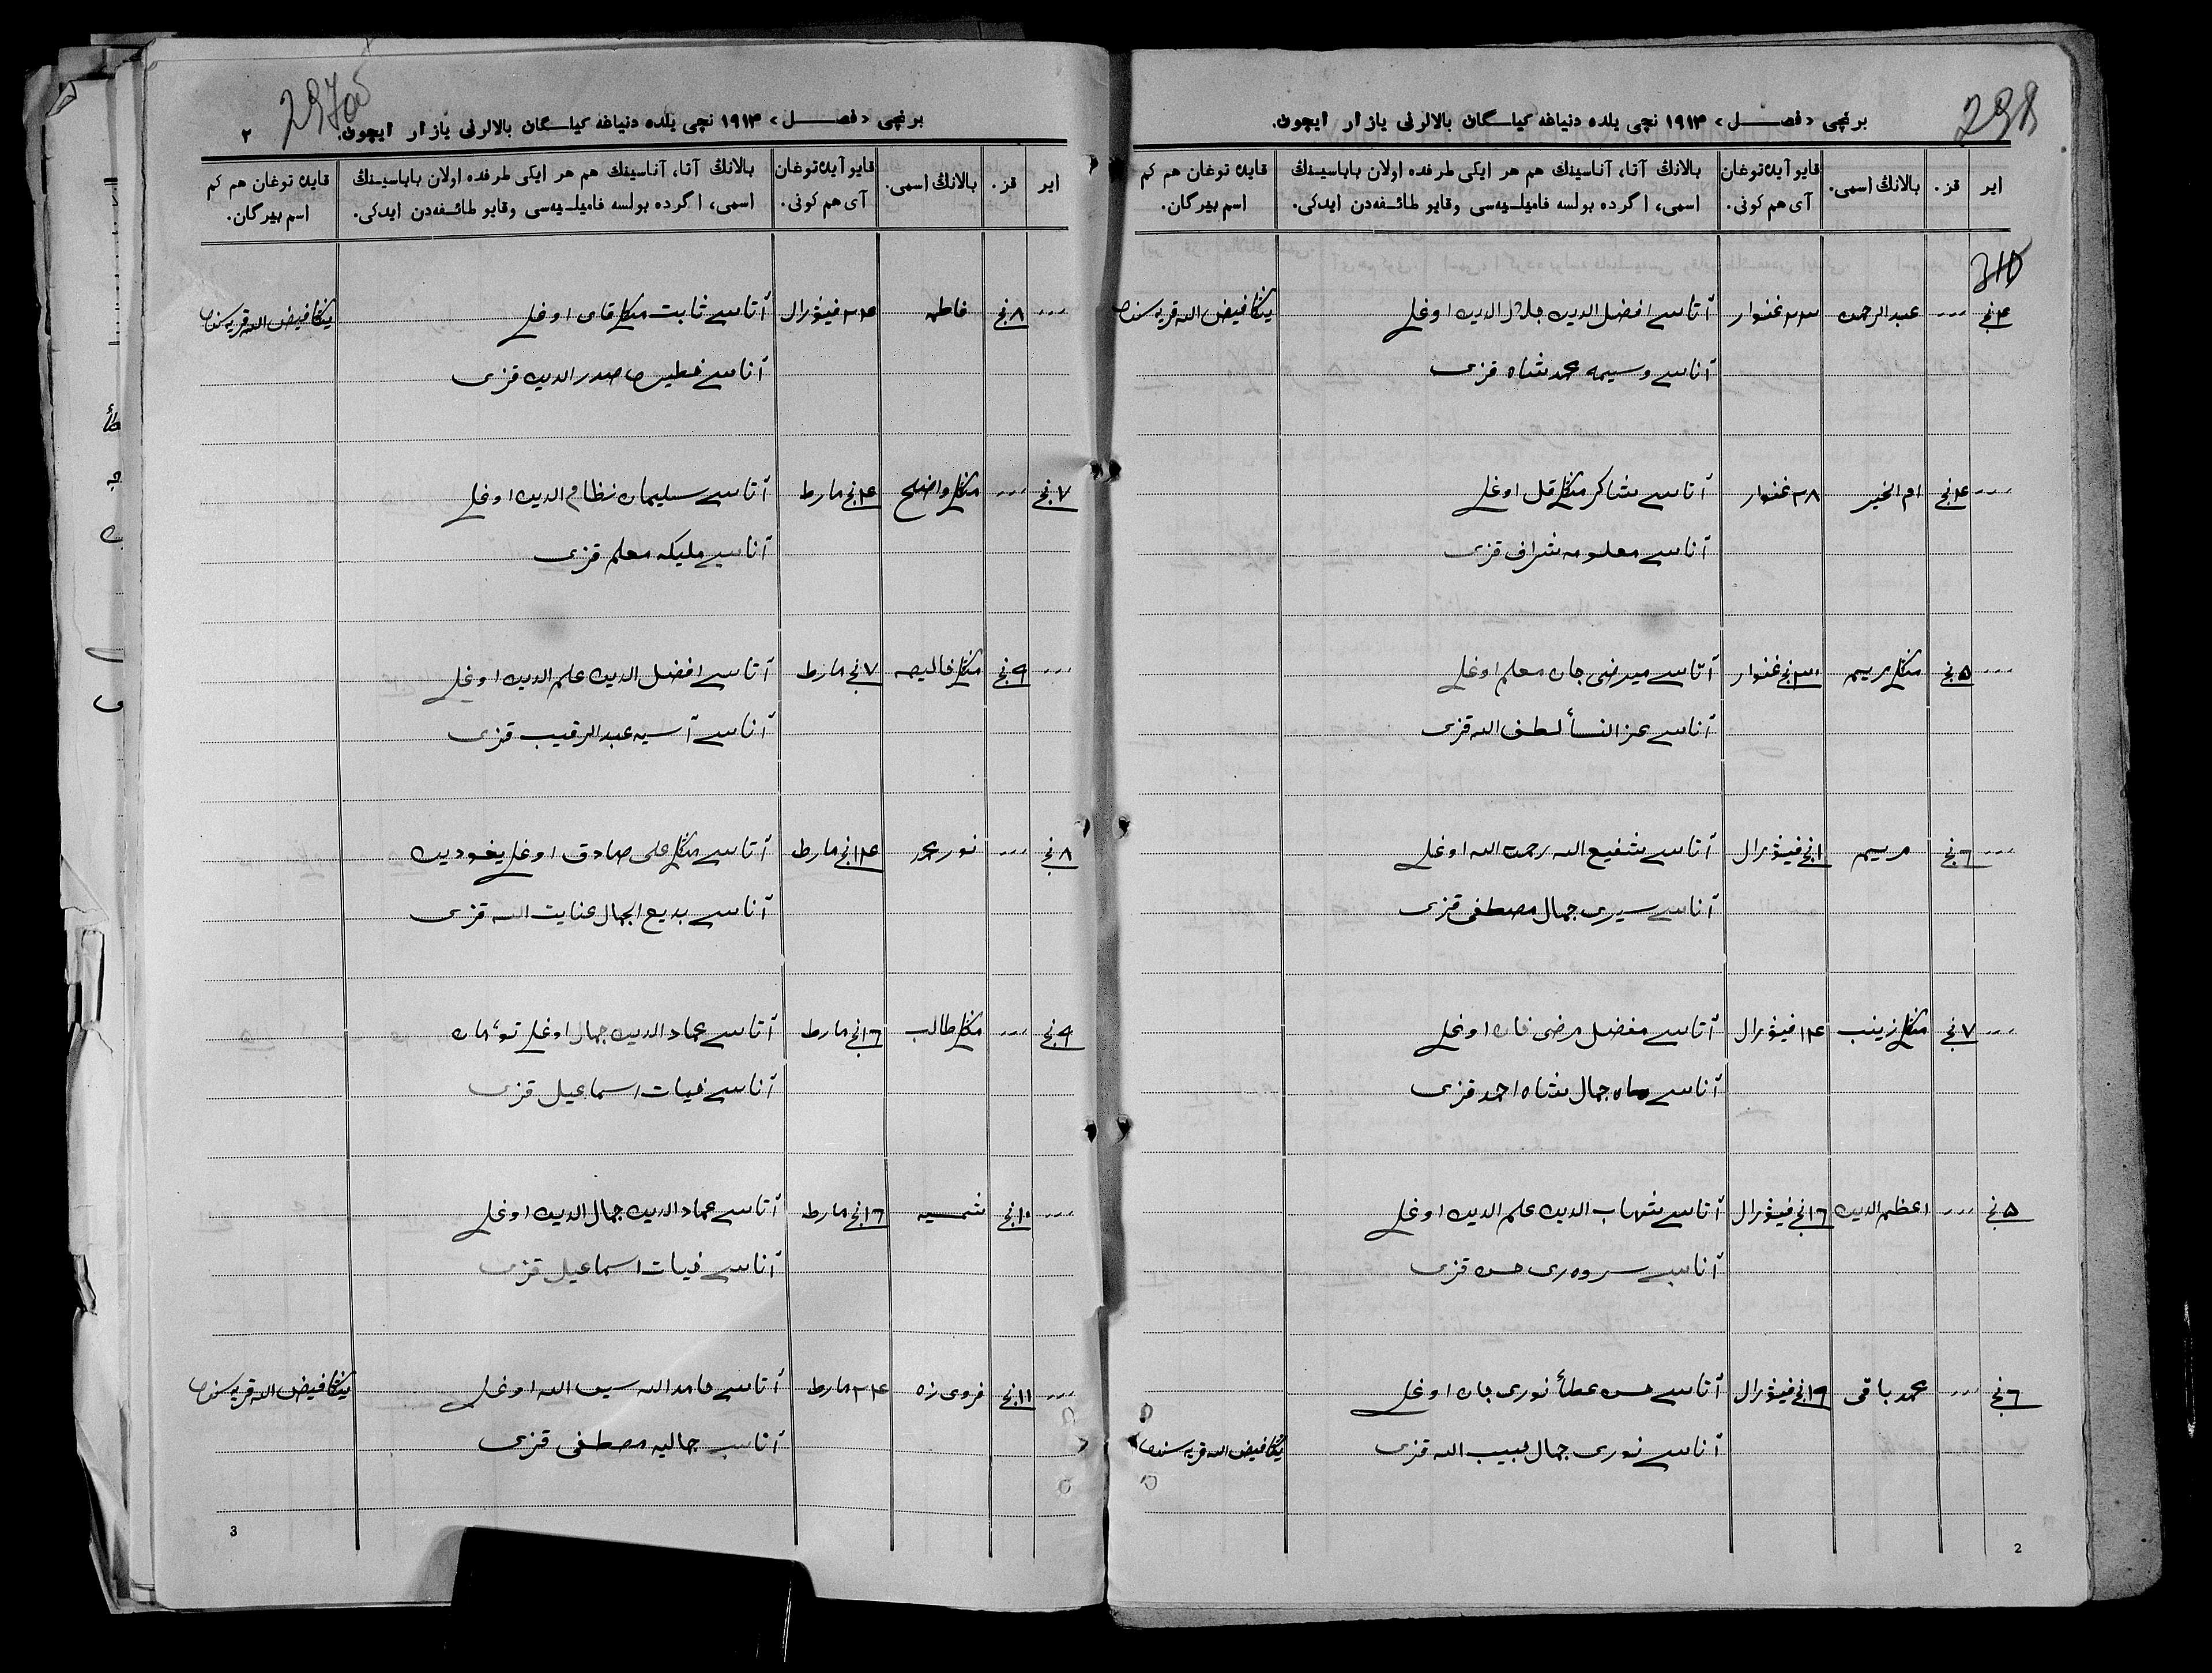 298
برنچی «فصل» ۱۹۱۳ نچی یلده دنیاغه کیلگان بالالرنی یازار ایچون.
ایر
قز.
بالانڭ اسمی.
قایو آیده توغان آی هم کونی.
بالانڭ آتا، آناسینڭ هم هر ایکی طرفده اولان باباسینڭ اسمی، اگرده بولسه فامیلیه‌سی وقایو طائفه‌دن ایدکی.
قایده توغان هم کم اسم بیرگان.
310
۴نچی --- عبدالرحمن ۲۳ غنوار آتاسے افضل الدین جلال الدین اوغلے
آناسے وسیمه محمدشاه قزی
--- ۴نچی ام الخیر ۲۸ غنوار آتاسے شاکر منکلےقل اوغلے
آناسے معلومه شراف قزی
--- ۵نچی منکلےمریم ۳۰نچی غنوار آتاسے میرضی جان معلم اوغلے
آناسے عزالنسأ لطف الله قزی
--- ۶نچی مریم ۱نچی فیۋرال آتاسے شفیع الله رحمت الله اوغلے
آناسے سیری جمال مصطفی قزی
--- ۷نچی منکلےزینب ۱۴ فیۋرال آتاسے مفضل مرضی خان اوغلے
آناسے ماه جمال شاه احمد قزی
۵نچی --- اعظم الدین ۱۶نچی فیۋرال آتاسے شهاب الدین علم الدین اوغلے
آناسے سروری حسن قزی
۶نچی --- محمد باقی ۱۹نچی فیۋرال آتاسے حسن عطأ نوری جان اوغلے
آناسے نوری جمال حبیب الله قزی
2
برنچی «فصل» ۱۹۱۳ نچی یلده دنیاغه کیلگان بالالرنی یازار ایچون.
۲
ایر
قز.
بالانڭ اسمی.
قایو آیده توغان آی هم کونی.
بالانڭ آتا، آناسینڭ هم هر ایکی طرفده اولان باباسینڭ اسمی، اگرده بولسه فامیلیه‌سی وقایو طائفه‌دن ایدکی.
قایده توغان هم کم اسم بیرگان.
--- ۸نچی فاطمه ۲۴ فیۋرال آتاسے ثابت اوغلے
آناسے صدرالدین قزی
۷نچی --- منکلےواضح ۴نچی مارط آتاسے سلیمان نظام الدین اوغلے
آناسے ملیکه معلم قزی
--- ۹نچی منکلےخالیصه ۷نچی مارط آتاسے افضل الدین علم الدین اوغلے
آناسے آسیه عبدالرقیب قزی
۸نچی --- نورمحمد ۱۴نچی مارط آتاسے منکلےعلی صادق اوغلے
آناسے بدیع الجمال عنایت الله قزی
۹نچی --- منکلےطالب ۱۶نچی مارط آتاسے عماد الدین جمال اوغلے توءمان
آناسے حیات اسماعیل قزی
--- ۱۰نچی شمسیه ۱۶نچی مارط آتاسے عماد الدین جمال الدین اوغلے
آناسے حیات اسماعیل قزی
--- ۱۱نچی ۲۴ مارط آتاسے حامدالله سیف الله اوغلے
آناسے جمالیه مصطفی قزی
3